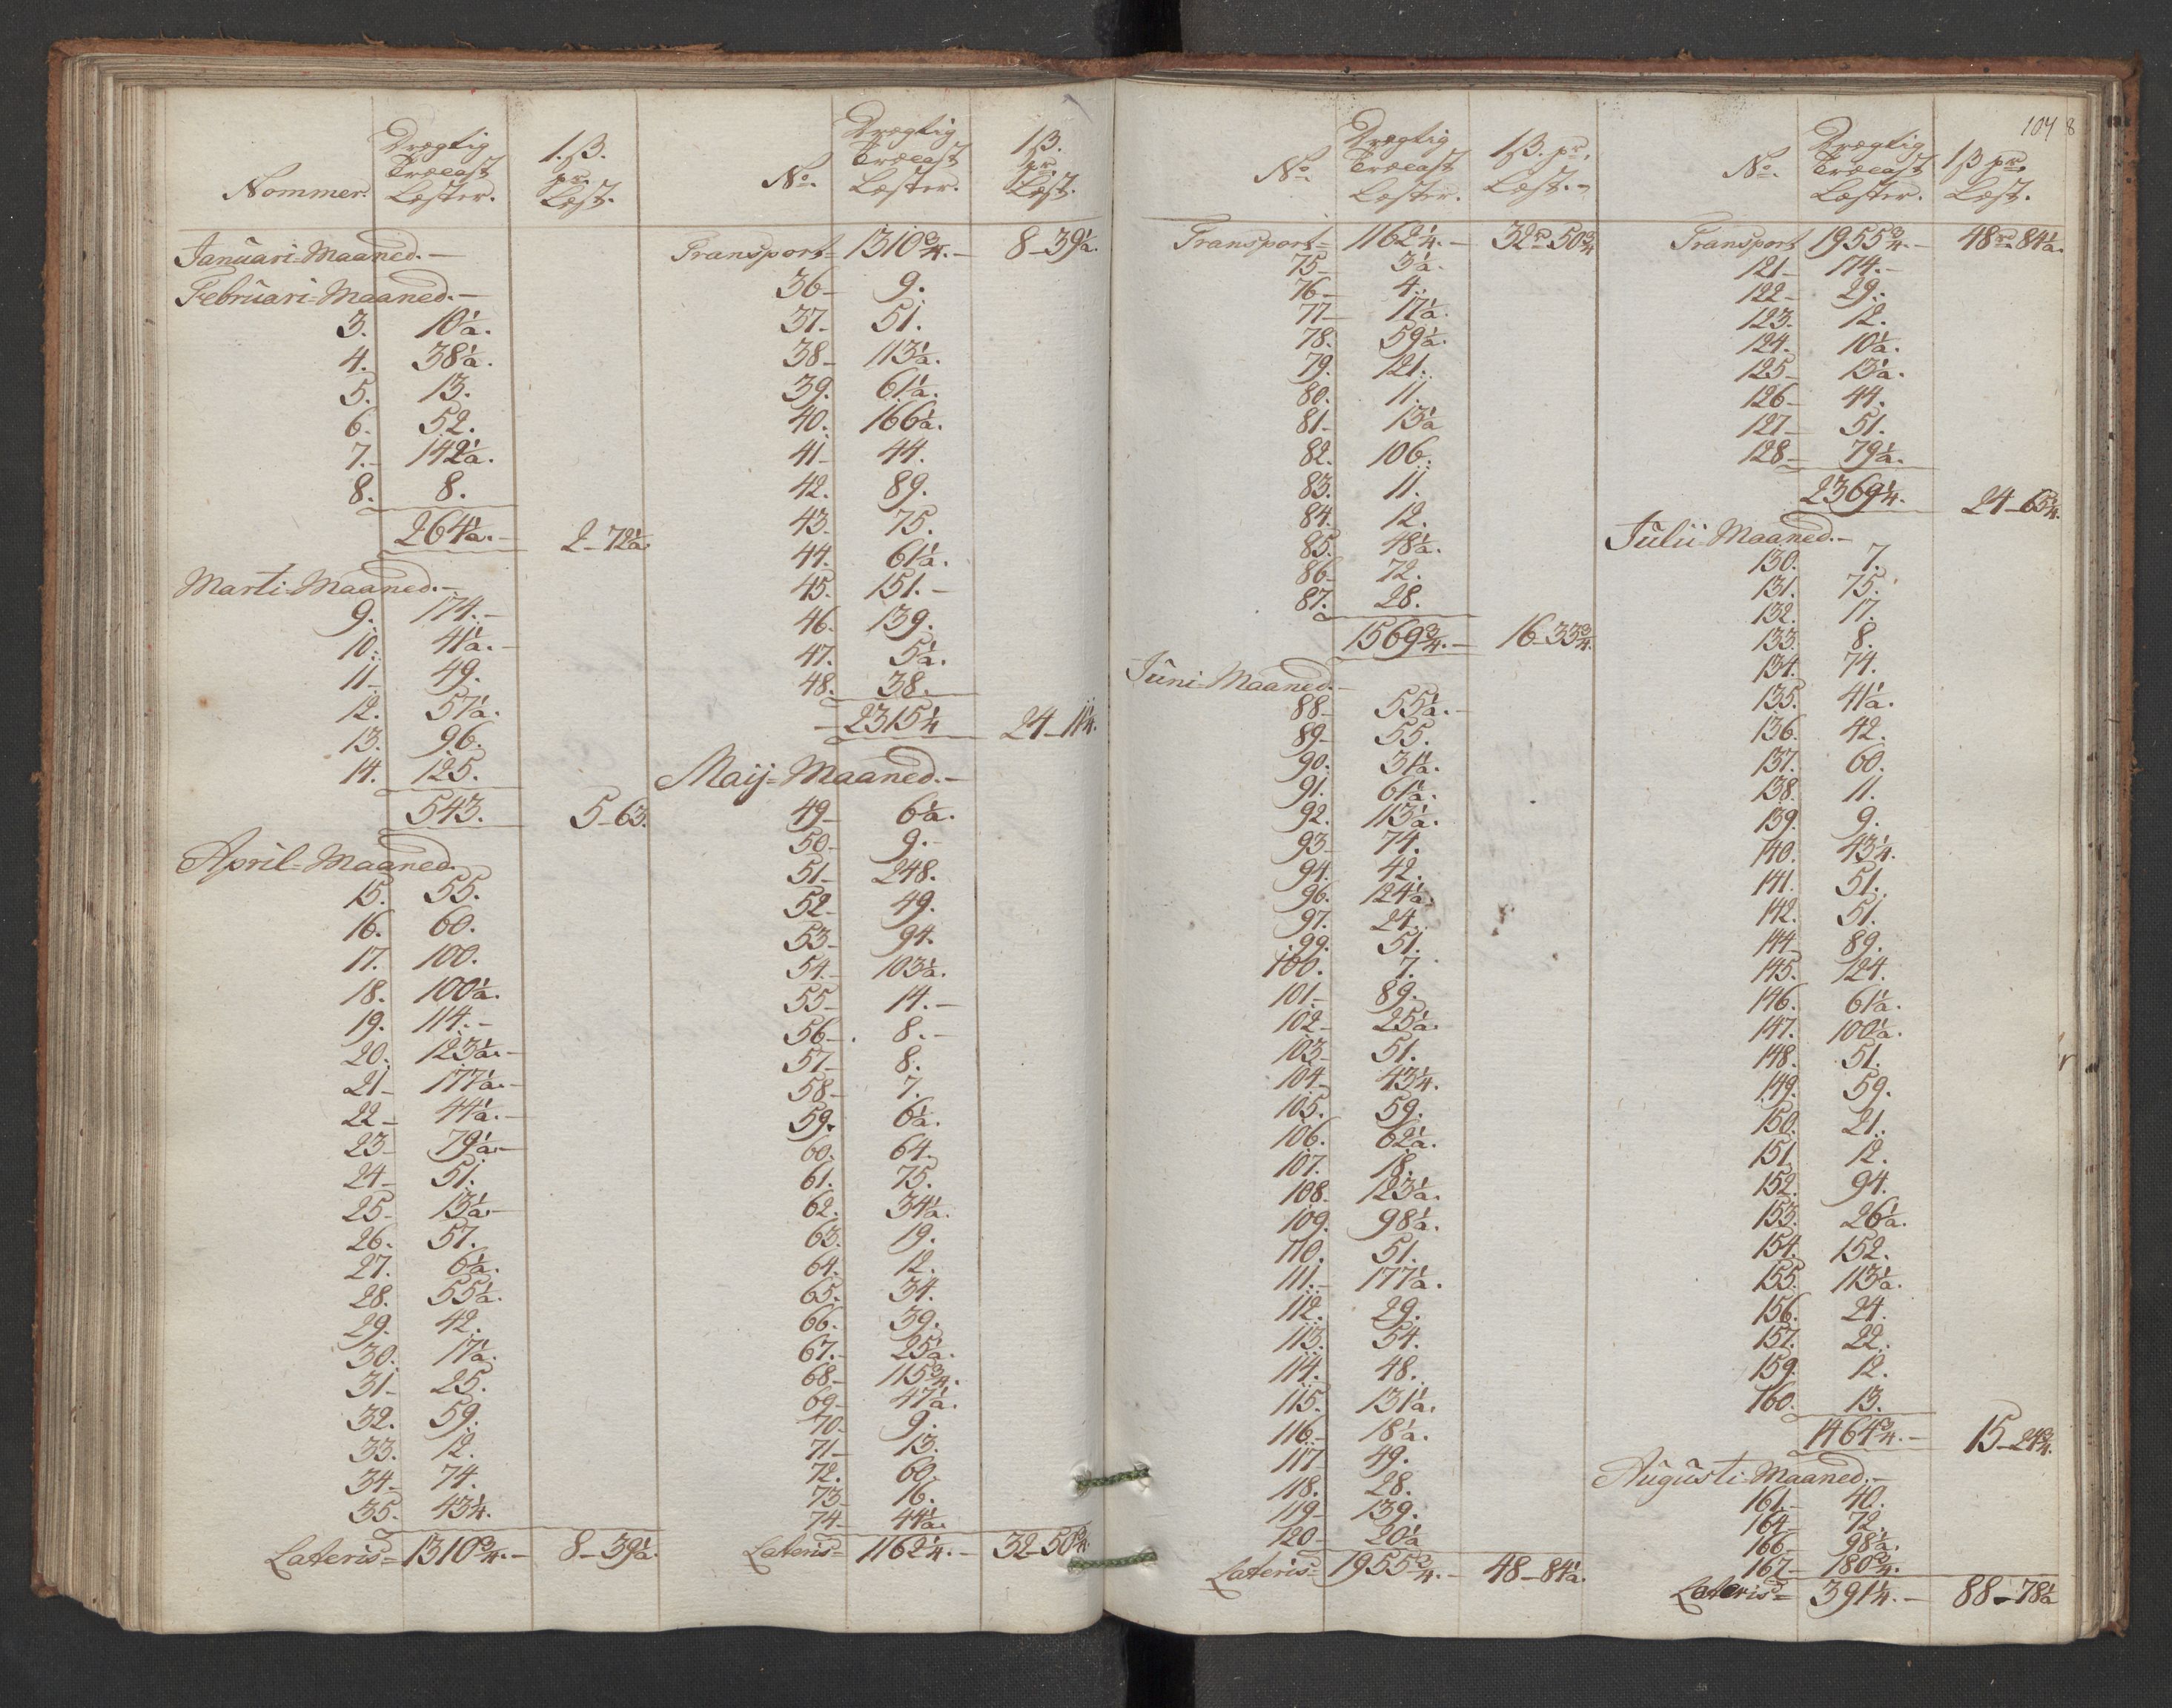 Nommer. Drægtig Trælast Læster. 1.ß. pr. Læst.
Januari-Maaned.-
Februari-Maaned.-
3. 10½.
4. 38½.
5. 13.
6. 52.
7.- 142½.
8. 8.
264½.- 2-72½.
Marti-Maaned.-
9. 174.-
10. 41½.-
11- 49.
12. 57½.
13. 96.
14. 125.
543. 5-63.
April-Maaned.
15. 55.
16. 60.
17. 100.
18. 100½.
19. 114.-
20. 123½.-
21- 177½.-
22- 44½.-
23- 79½.-
24- 51.
25- 13½.-
26. 51.
27. 6½.
28. 55½.
29. 42.
30. 17½.
31- 25.
32. 59.
33. 12.
34- 74.
35. 43¼.
Lateris= 1310¾.- 8-39½.
No. Drægtig Trælast Læster. 1ß. pr. Læst.
Transport= 1310¾.- 8-39½.
36- 9.
37- 51.
38- 113½.
39. 61½.
40. 166½.
41- 44.
42. 89.
43. 75.
44. 61½.
45. 151.-
46. 139.
47. 5½.
48. 38.
2315¼ 24-11¼.
Maij-Maaned.-
49- 6½.
50- 9.-
51- 248.
52- 49.
53- 94.
54.- 103½.
55- 14.-
56- 8.-
57- 8.
58- 7.
59. 6½.
60. 64.
61. 75.
62. 34½.
63. 19.
64. 12.
65. 34.
66. 39.
67.- 25½.
68- 115¾.
69- 47½.
70- 9.
71- 13.
72. 60.
73- 16.
74- 44½.
Lateris= 1162¼.- 32-50¾.
104 8
No. Drægtig Trælast Læster. 1ß. pr. Læst.-
Transport= 1162¼.- 32rd-50¾
75- 3½.
76- 4.
77- 17½.
78. 59½.
79. 121.
80. 11.
81- 13½
82. 106.
83. 11.
84. 12.
85. 48½.
86- 72.
87. 28.
1569¾.- 16-33¾.
Juni-Maaned.-
88- 55½.-
89- 55.
90. 31½.
91. 61½.
92. 113½.
93- 74.
94. 42.
96. 124½.
97. 24.
99. 51.
100. 7.
101.- 89.
102- 25½.
103- 51.
104- 43¼.
105. 59.
106. 62½.
107. 18.
108. 123½.
109. 98½.
110. 51.
111.- 177½.
112. 29.
113. 54.
114. 48.
115. 131½.
116.- 18½.
117 49.
118. 28.
119- 139.
120- 20½
Lateris= 1955¾.- 48-84½.
No. Drægtig Trælast Læster. 1ß pr. Læst.
Transport 1955¾.- 48rd 84½.
121- 174.-
122- 29.
123. 12.
124. 10½.
125- 13½.
126- 44.
127- 51.
128- 79½.
2369¼. 24-65¼.
Julii-Maaned.-
130. 7.
131. 75.
132. 17.
133. 8.
134. 74.
135. 41½.
136. 42.
137. 60.
138. 11.
139. 9.
140. 43¼.
141. 51.
142. 51.
144- 89.
145. 124.
146. 61½.
147. 100½.
148. 51.
149. 59.
150. 21.
151. 12.
152. 94.
153. 26½.
154. 152.
155. 113½.
156. 24.
157. 22.
159. 12.
160. 13.
1464¾.- 15-24¾.
Augusti-Maaned.-
161.- 40.
164- 72.
166- 98½.
167- 180¾.
Lateris= 391¼.- 88-78½